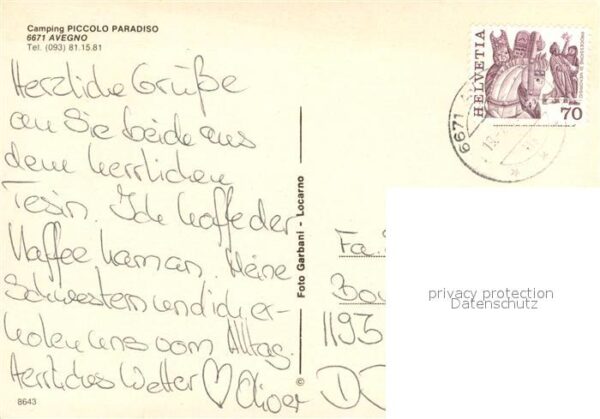 Camping PICCOLO PARADISO
6671 AVEGNO
Tel. (093) 81.15.81
Herzliche Grüße
an Sie beide aus
dem herrlichen
Tesin. Ich hoffe der
Kaffee kam an. Meine
Schwestern und ich er-
holen uns vom Alltag.
Herrliches Wetter ♡ Oliver
8643
Foto Garbani - Locarno
©
HELVETIA
70
6671
Fa.
1193
D
privacy protection
Datenschutz